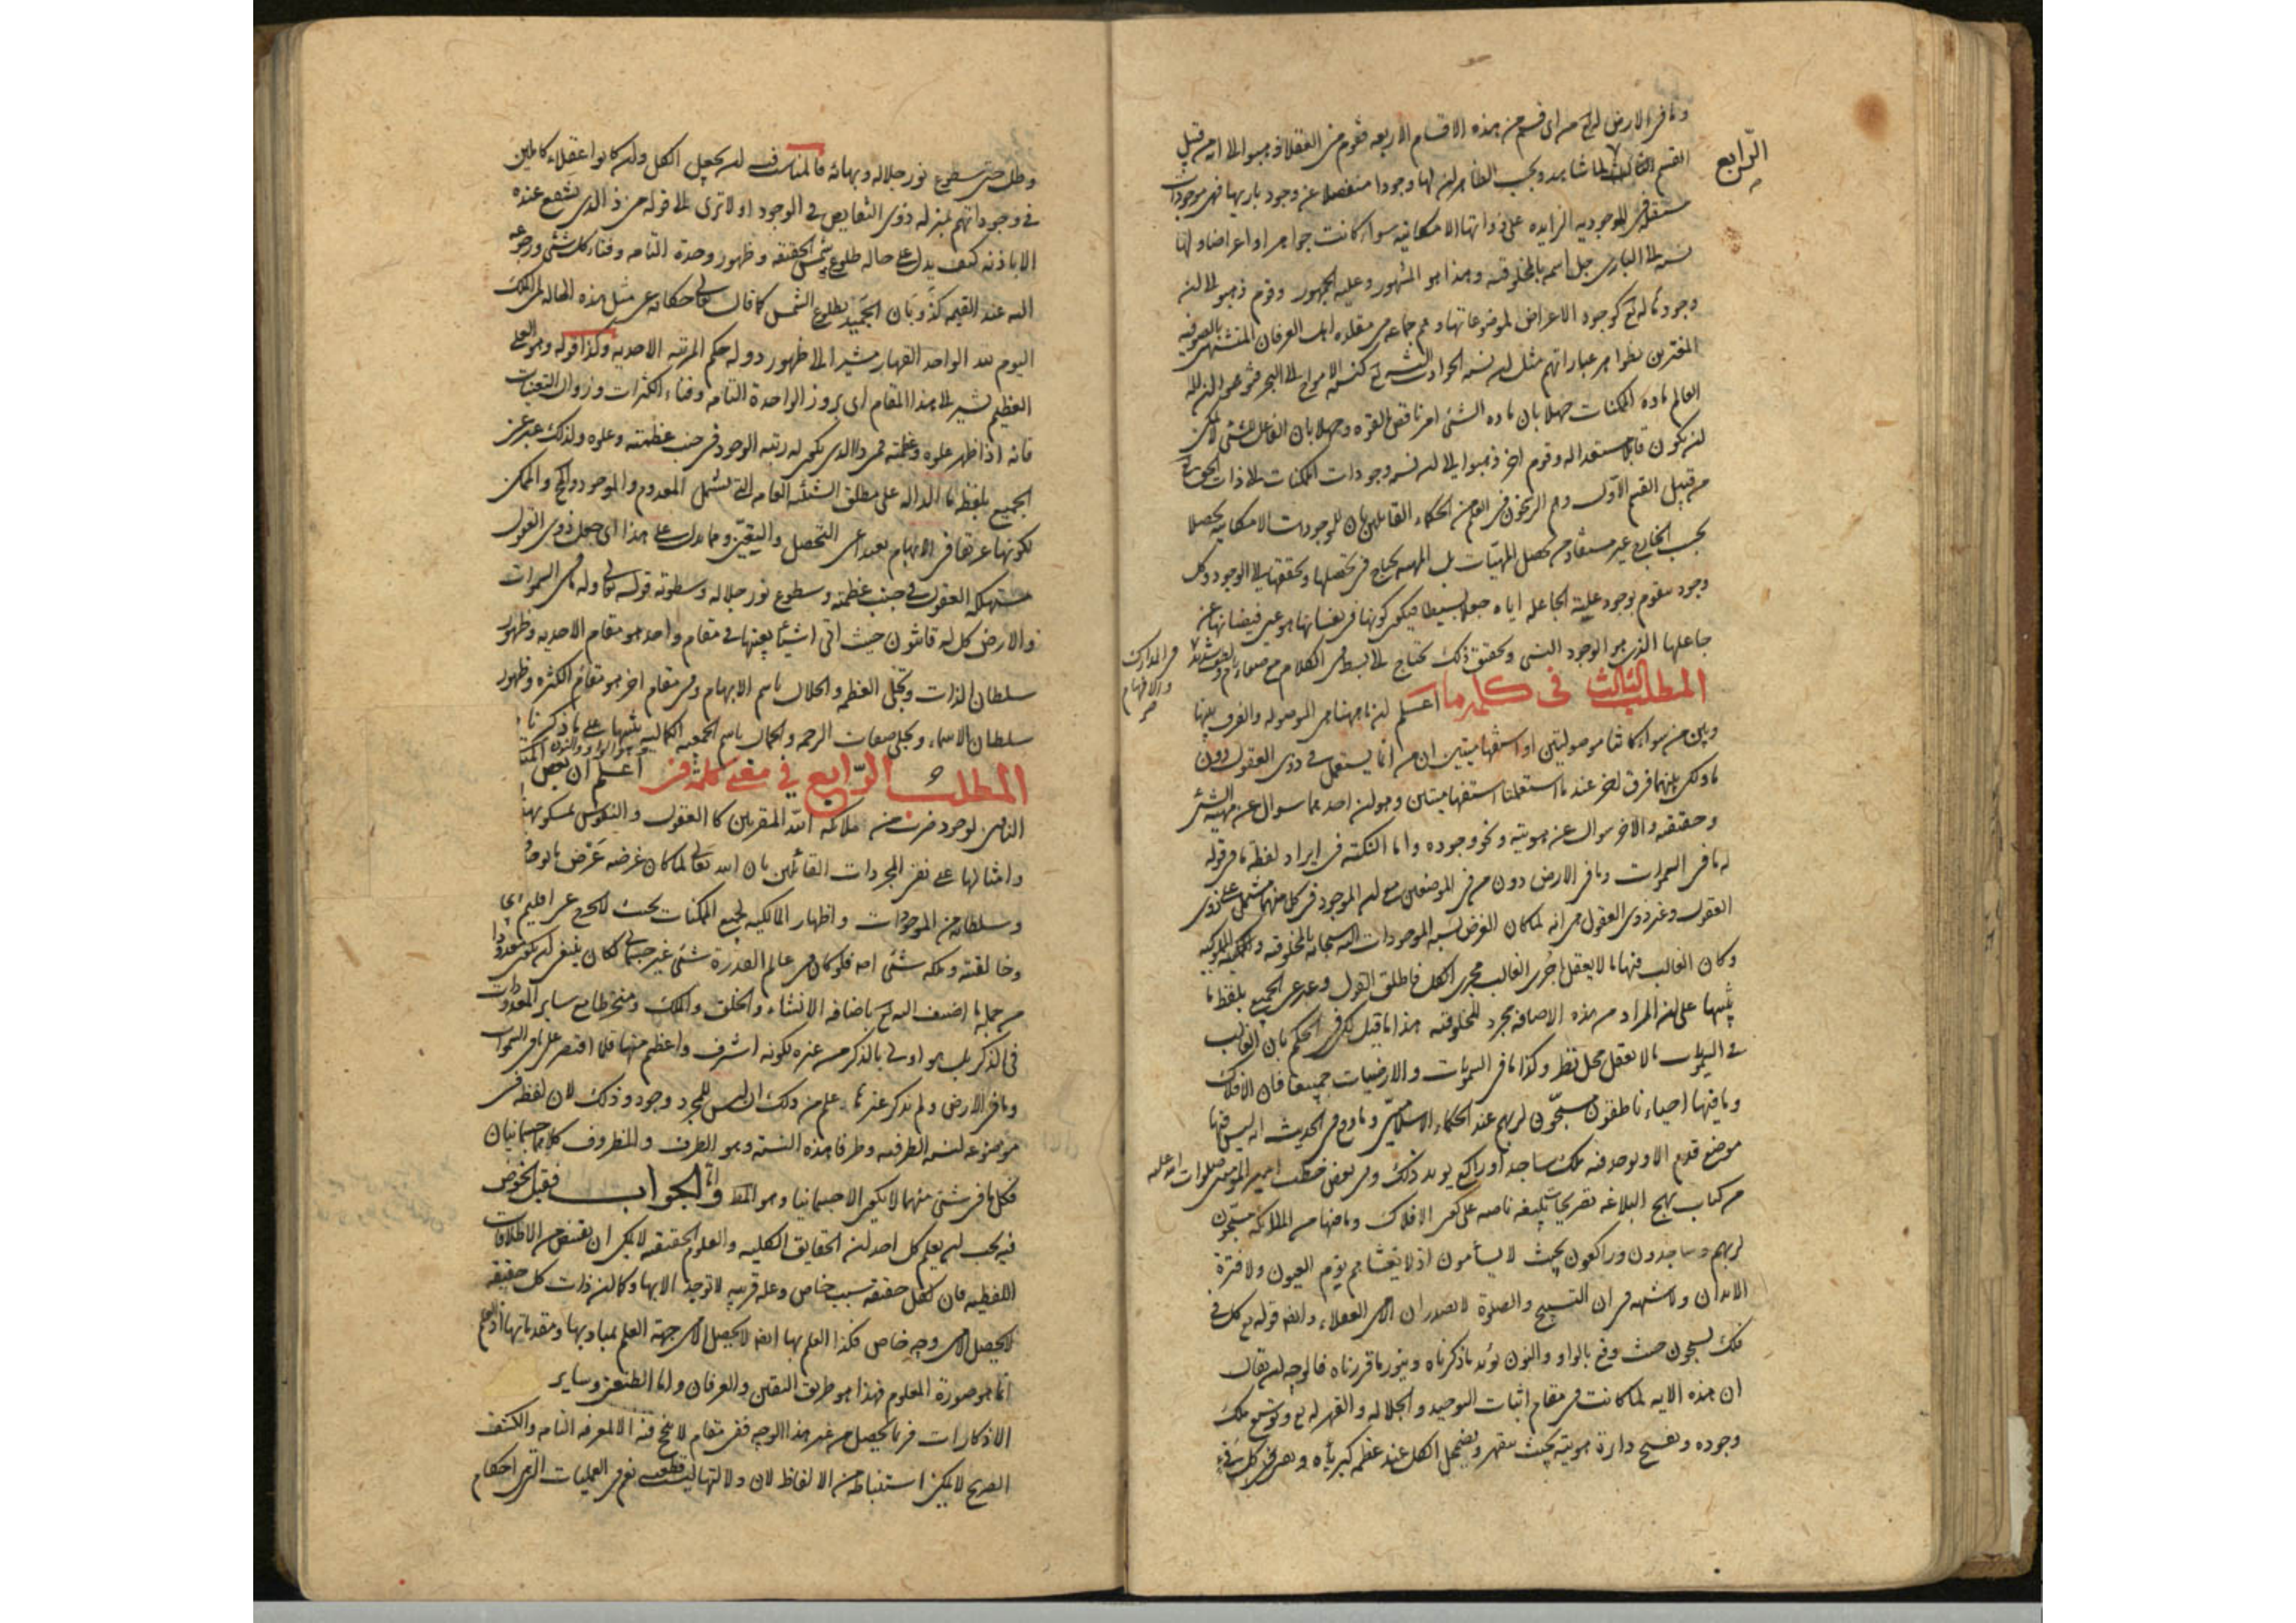 وما في الارض له تع من اى قسم من هذه الاقسام الاربعه فقوم من العقلا ذهبوا الى انه من قبيل
الرّابع
القسم الثالث لما شاهدوا بحسب الظاهر ان لها وجودا منفصلا عن وجود باريها فهى موجودات
مستقله فى الموجوديه الزايده على ذواتها الامكانيه سواء كانت جواهر او اعراضا ولها
نسبه الى البارى جل اسمه بالمخلوقيه وهذا هو المشهور وعليه الجمهور وقوم ذهبوا الى ان
وجود ما له تع كوجود الاعراض لموضوعاتها وهم جماعه من مقلده اهل العرفان المتشبهين بالصوفيه
المغترين بظواهر عباراتهم مثل ان نسبه الحوادث اليه تع كنسبه الامواج الى البحر فتوهموا ان اله
العالم ماده الممكنات جهلا بان ماده الشئ امر ناقص بالقوه وجهلا بان الفاعل للشئ لا يمكن
ان يكون قابلا مستعدا له وقوم اخر ذهبوا الى ان نسبه وجودات الممكنات الى ذات الحق تع
من قبيل القسم الاوّل وهم الراسخون فى العلم من الحكماء القائلين بان للوجودات الامكانيه تحصلا
بحسب الخارج غير مستفاد من تحصل المهيّات بل المهيه تحتاج فى تحصلها وتحققها الى الوجود وكل
وجود متقوم بوجود علته الجاعله اياه جعلا بسيطا فيكون كونها فى نفسها هو عين فيضانها عن
جاعلها الذى هو الوجود الغنى وتحقيق ذلك يحتاج الى بسط فى الكلام مع صفاء تام ولطف شديد
فى المدارك
والافهام
المطلب الثالث فى كلمه ما اعلم ان ما ههنا هى الموصوله والفرق بينها
وبين من سواء كانتا موصولتين او استفهاميتين ان من انما يستعمل فى ذوى العقول دون
ما ولكن بينهما فرق اخر عند ما استعملتا استفهاميتين وهو ان احدهما سوال عن مهيه الشئ
وحقيقته والاخر سوال عن هويته ونحو وجوده واما النكته فى ايراد لفظه ما فى قوله
له ما فى السموات وما فى الارض دون من فى الموضعين مع ان الموجود فى كل منهما مشتمل على ذوى
العقول وغير ذوى العقول هى انه لما كان الغرض نسبه الموجودات اليه سبحانه بالمخلوقيه والمملوكيه
وكان الغالب فيها ما لا يعقل اجرى الغالب مجرى الكل فاطلق القول وعبر عن الجميع بلفظ ما
تنبيها على ان المراد من هذه الاضافه مجرد المخلوقيه هذا ما قيل لكن فى الحكم بان الغالب
فى السموات ما لا يعقل محل نظر وكذا ما فى السمويات والارضيات جميعا فان الافلاك
وما فيها احياء ناطقون مسبّحون لربهم عند الحكماء الاسلاميين وما ورد فى الحديث انه ليس فيها
موضع قدم الا ويوجد فيه ملك ساجد او راكع يويد ذلك وفى بعض خطب امير المومنين صلوات الله عليه
من كتاب نهج البلاغه تصريحات بليغه ناصه على كون الافلاك وما فيها من الملائكه مسبّحون
لربهم وساجدون وراكعون بحيث لا يسأمون اذ لا يغشاهم نوم العيون ولا فترة
الابدان ولا شبهه فى ان التسبيح والصلوة لا يصدران الا من العقلاء وايضا قوله تع كل فى
فلك يسبحون حيث وقع بالواو والنون يؤيد ما ذكرناه وينور ما قررناه فالوجه ان يقال
ان هذه الايه لما كانت فى مقام اثبات التوحيد والجلاله والقهر له تع وتوسيع ملك
وجوده وتفسيح دايرة هويته بحيث ينقهر ويضمحل الكل عند عظمه كبريائه
وظل حتى سطوع نور جلاله وبهائه فالمناسب فيه ان يجعل الكل وان كانوا عقلاء كاملين
فى وجوداتهم بمنزله ذوى النقايص فى الوجود او لا ترى الى قوله من ذا الذى يشفع عنده
الا باذنه كيف يدل على حاله طلوع شمس الحقيقه وظهور وحدة التامه وفناء كل شئ ورجوعه
اليه عند القيمه كذوبان الجميد بطلوع الشمس كما قال تعالى حكايه عن مثل هذه الحاله لمن الملك
اليوم لله الواحد القهار مشيرا الى ظهور دوله حكم المرتبه الاحديه وكذا قوله وهو العلى
العظيم يشير الى هذا المقام اى بروز الواحدة التامه وفناء الكثرات وزوال التعينات
فانه اذا ظهر علوه وعظمته فمن ذا الذى يكون له رتبه الوجود فى جنب عظمته وعلوه ولذلك عبر عن
الجميع بلفظ ما الداله على مطلق الشئيه العامه التى تشمل المعدوم والموجود والواجب والممكن
لكونها عريقا فى الابهام بعيدا عن التحصل واليقيّن ومما يدل على هذا اى جعل ذوى العقول
مستهلكه العقول فى جنب عظمته وسطوع نور جلاله وسطوته قوله تعالى وله ما فى السموات
والارض كل له قانتون حيث اتى اشيأ بعينها فى مقام واحد هو مقام الاحديه وظهور
سلطان الذات وتجلى العظمه والجلال باسم الابهام وفى مقام اخر هو مقام الكثره وظهور
سلطان الاسماء وتجلى صفات الرحمه والجمال باسم الجمعيه الكماليه تنبيها على ما ذكرنا
هو الواو والنون
المطلب الرّابع فى معنى كلمة فى اعلم ان بعض
النافين لوجود ضرب من ملائكه الله المقربين كالعقول والنفوس تمسكوا بهذه
وامثالها على نفى المجردات القائلين بان الله تعالى لما كان غرضه عرض
وسلطانه من الموجودات واظهار المالكيه لجميع الممكنات بحيث لا يخرج عن اقليم
وخالقيته وملكه شئ اصلا فلو كان فى عالم القدرة شئ غير جسمانى لكان ينبغى ان يكون معدودا
من جمله ما اضيف اليه تع باضافه الانشاء والخلق والملك ومنخرطا مع ساير المعدودات
فى الذكر بل هو اولى بالذكر من غيره لكونه اشرف واعظم منها فلما اقتصر على ما فى السموات
وما فى الارض ولم يذكر غيرهما علم من ذلك ان ليس للمجرد وجود وذلك لان لفظه فى
موضوعه لنسبه الظرفيه وطرفا هذه النسبه وهو الظرف والمظروف كلاهما جسمانيان
فكل ما فى شئ منهما لا يكون الا جسمانيا وهو المط واما الجواب فقبل الخوض
فيه يجب ان يعلم كل احد ان الحقايق الكليه والعلوم الحقيقيه لا يمكن ان يقتنص من الاطلاقات
اللفظيه فان لكل حقيقه سبب خاص وعله قريبه لا توجد الا بها وكما ان ذات كل حقيقه
لا يحصل الا من وجه خاص فكذا العلم بها ايضا لا يحصل الا من جهة العلم بمباديها ومقدماتها اذ العلم
انما هو صورة المعلوم فهذا هو طريق اليقين والعرفان واما الظنون وساير
الادراكات فربما يحصل من غير هذا الوجه ففى مقام لا ينجح فيه الا المعرفه التامه والكشف
الصريح لا يمكن استنباطه من الالفاظ لان دلالتها ليست قطعيه نعم فى العمليات التى احكام